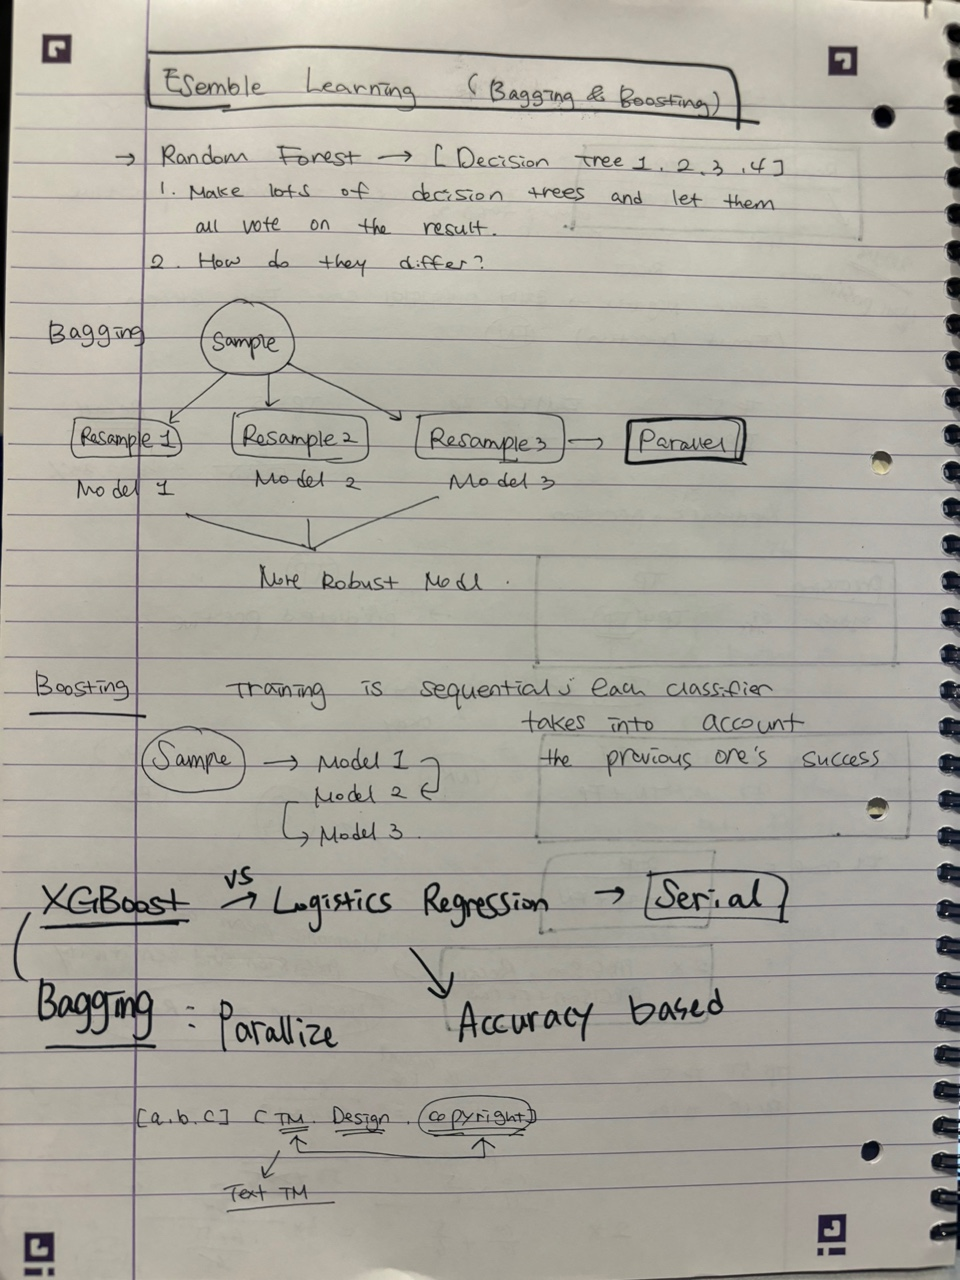 Esemble Learning (Bagging & Boosting)
→ Random Forest → [Decision tree 1, 2, 3, 4]
1. Make lots of decision trees and let them
all vote on the result.
2. How do they differ?
Bagging
Sample
Resample 1 Resample 2 Resample 3 → Parallel
Model 1 Model 2 Model 3
More Robust Modl.
Boosting Training is sequential; each classifier
takes into account
the previous one's success
Sample → Model 1
Model 2
Model 3.
XGBoost vs → Logistics Regression → Serial
Bagging : Parallize
Accuracy based
[a.b.c] [TM. Design. Copyright]
Text TM